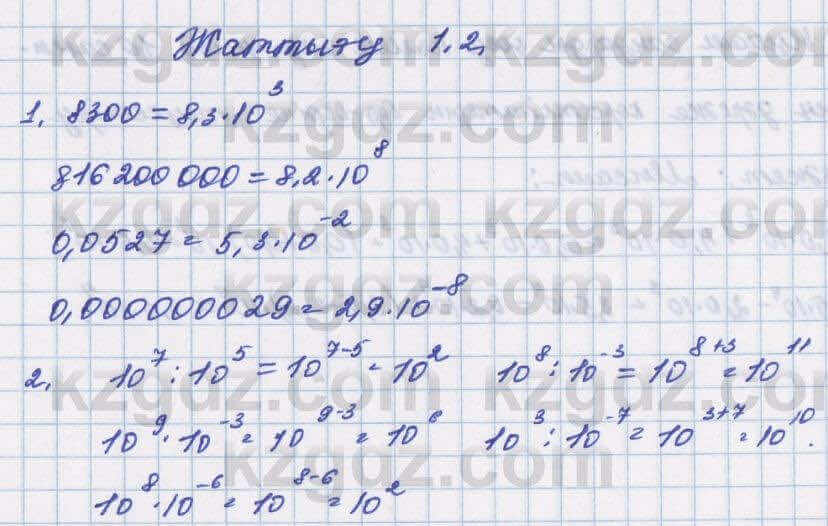 Жаттығу 1.2.
1. 8300 = 8,3·10³
816 200 000 = 8,2·10⁸
0,0527 = 5,3·10⁻²
0,000000029 = 2,9·10⁻⁸
2. 10⁷ : 10⁵ = 10⁷⁻⁵ = 10² 10⁸ : 10⁻³ = 10⁸⁺³ = 10¹¹
10⁹ · 10⁻³ = 10⁹⁻³ = 10⁶ 10³ : 10⁻⁷ = 10³⁺⁷ = 10¹⁰.
10⁸ · 10⁻⁶ = 10⁸⁻⁶ = 10²
kzgdz.com